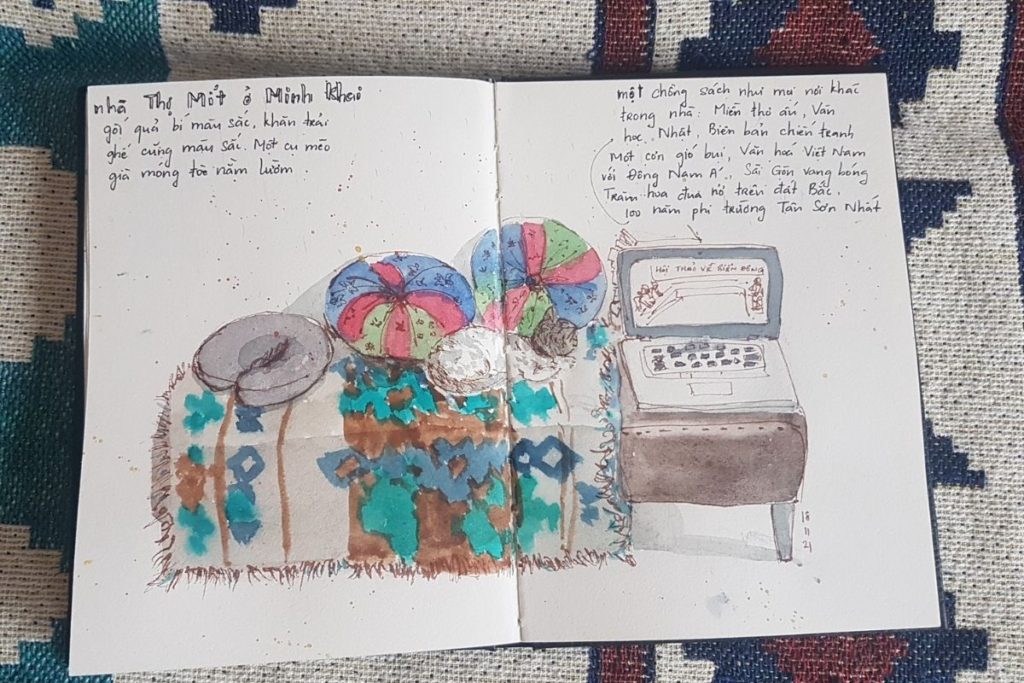 nhà Thợ Mót ở Minh Khai
gối quả bí màu sắc, khăn trải
ghế cũng màu sắc. Một cu mèo
già móng tòe nằm lườm
một chồng sách như mọi nơi khác
trong nhà: Miền thơ ấu, Văn
học Nhật, Biên bản chiến tranh
Một cơn gió bụi, Văn hoá Việt Nam
với Đông Nam Á, Sài Gòn vang bóng
Trăm hoa đua nở trên đất Bắc.
100 năm phi trường Tân Sơn Nhất
HỘI THẢO VỀ BIỂN ĐÔNG
18
11
21